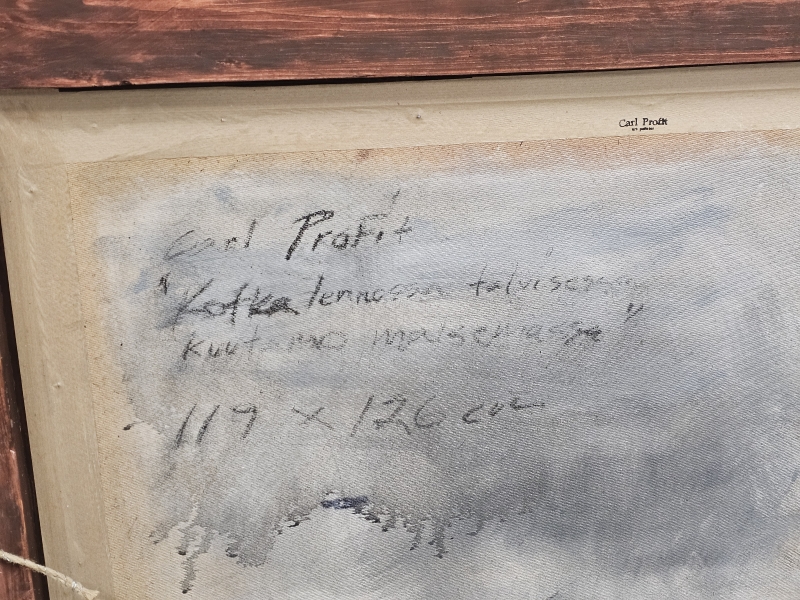 Carl Profit
Carl Profit
"Kotka lennossa talvisessa
kuutamo maisemassa"
119 x 126 cm